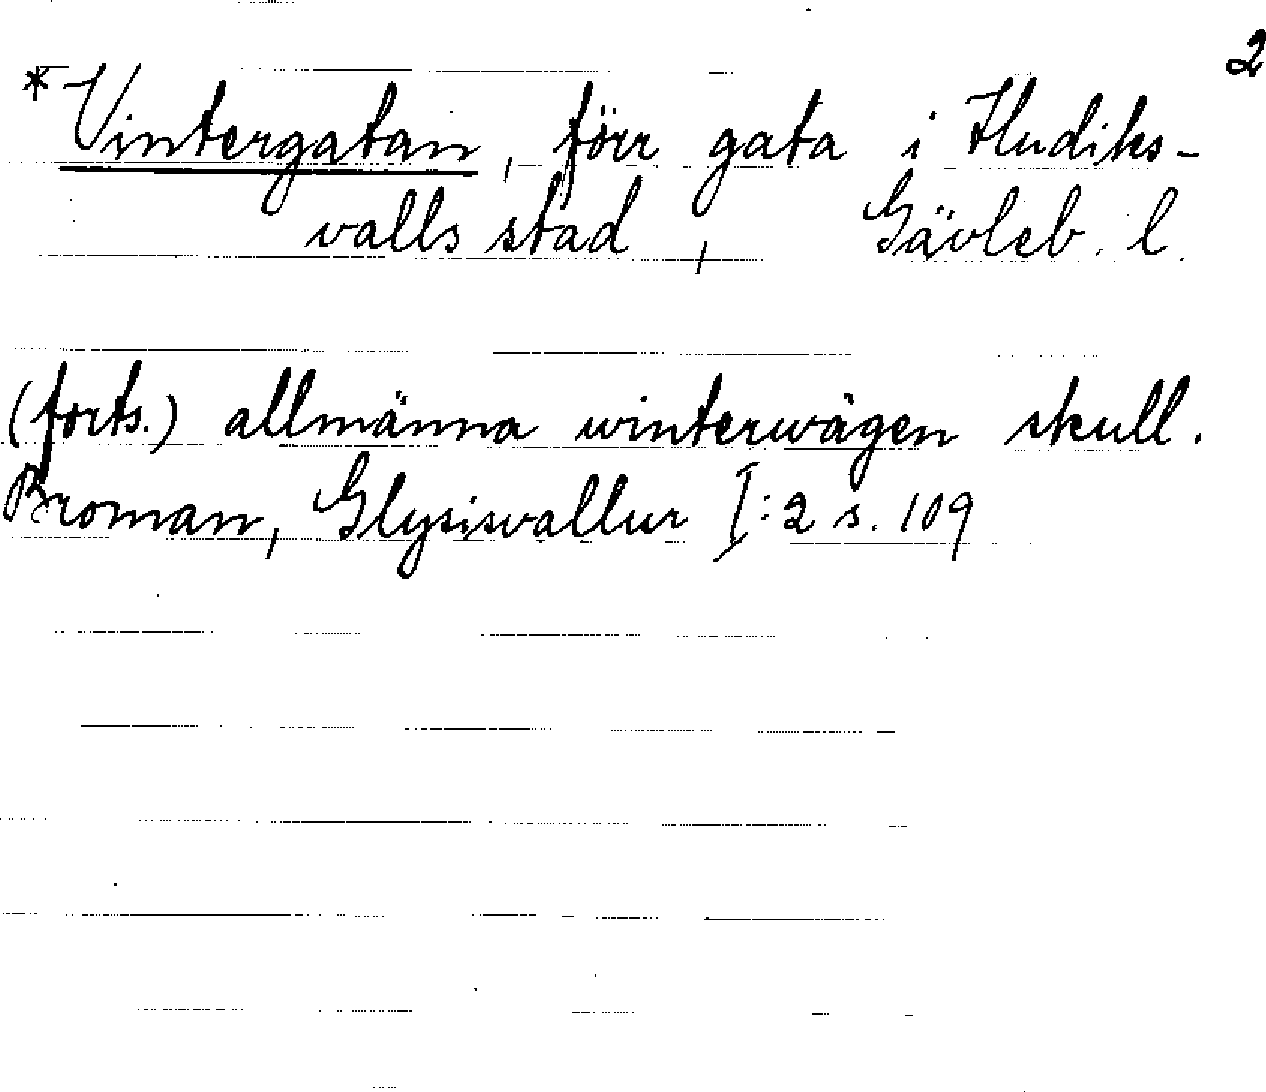 2
*Vintergatan, förr gata i Hudiks-
valls stad, Gävleb. l.
(forts.) allmänna winterwägen skull.
Broman, Glysisvallur I:2 s. 109